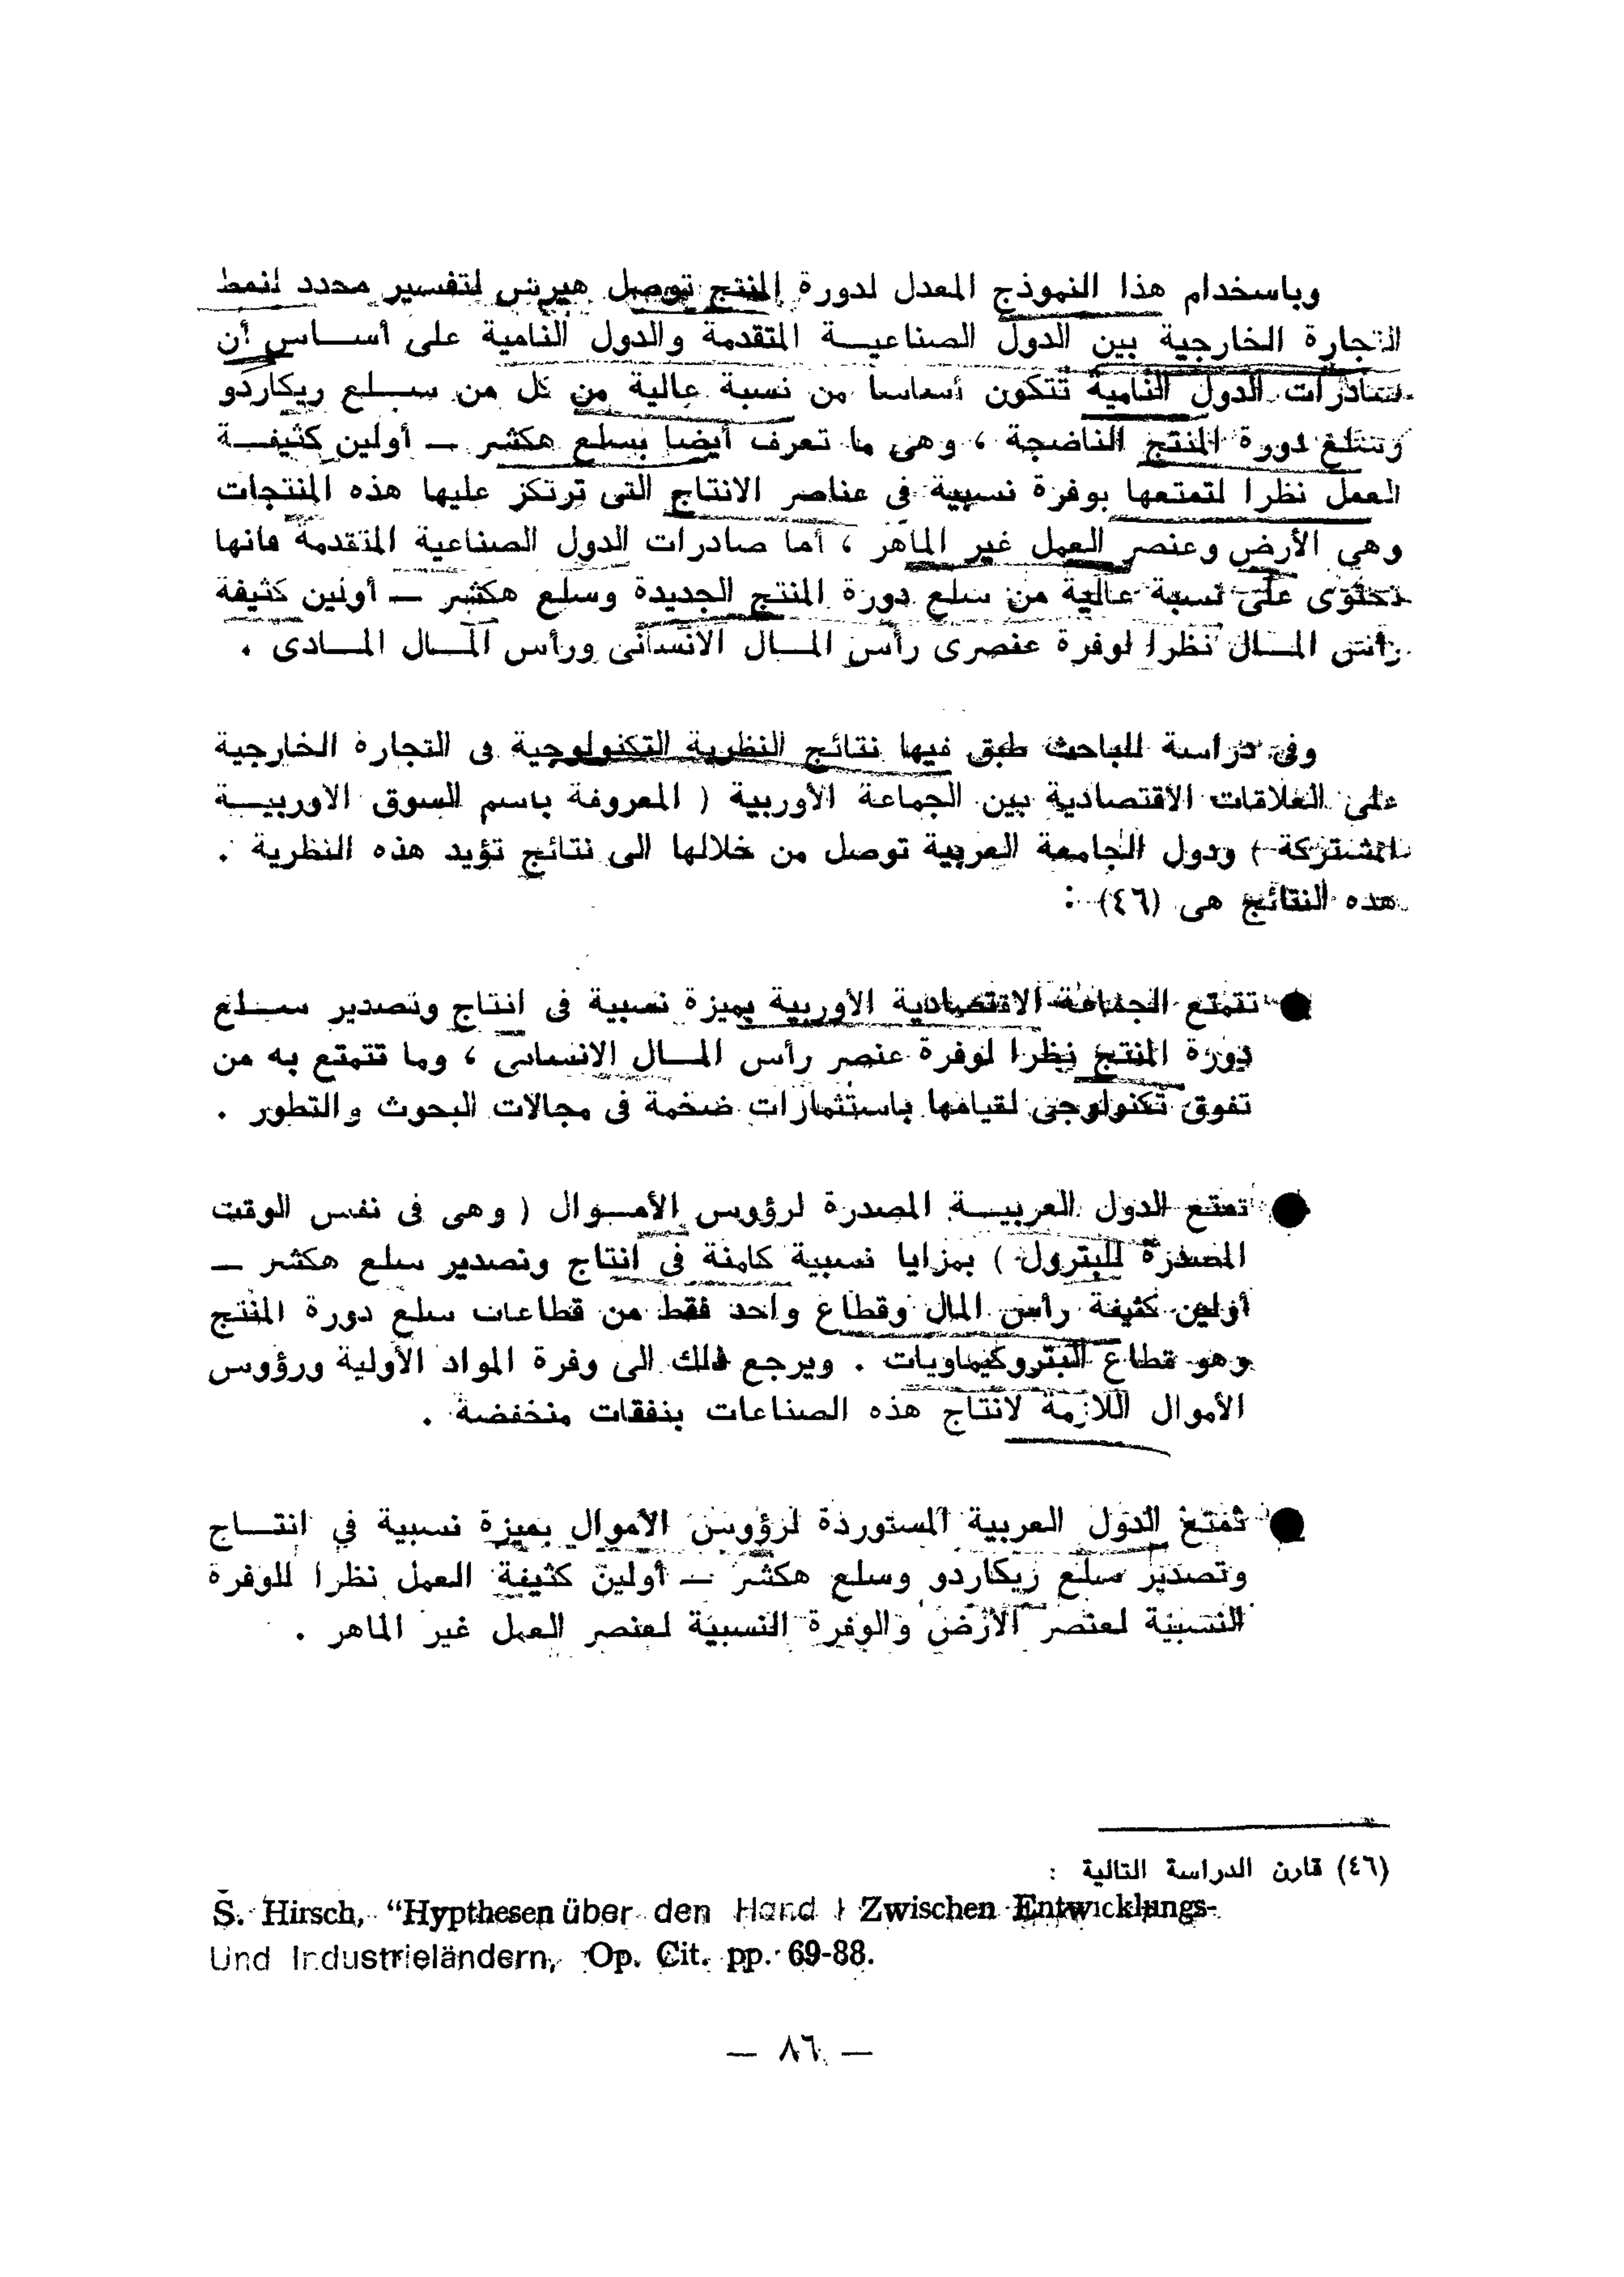 وباسخدام هذا النموذج المعدل لدورة المنتج توصل هيرش لتفسير محدد لنمط
التجارة الخارجية بين الدول الصناعيـة المتقدمة والدول النامية على أسـاس أن
صادرات الدول النامية تتكون أساسا من نسبة عالية من كل من سـلع ريكاردو
وسلع دورة المنتج الناضجة ، وهى ما تعرف أيضا بسلع هكشر – أولين كثيفـة
العمل نظرا لتمتعها بوفرة نسبية في عناصر الانتاج التى ترتكز عليها هذه المنتجات
وهي الأرض وعنصر العمل غير الماهر ، أما صادرات الدول الصناعية المتقدمة فانها
تحتوى على نسبة عالية من سلع دورة المنتج الجديدة وسلع هكشر – أولين كثيفة
رأس المـال نظرا لوفرة عنصرى رأس المـال الانسانى ورأس المـال المـادى .
وفى دراسة للباحث طبق فيها نتائج النظرية التكنولوجية فى التجارة الخارجية
على العلاقات الاقتصادية بين الجماعة الأوربية ( المعروفة باسم السوق الاوربيـة
المشتركة ) ودول الجامعة العربية توصل من خلالها الى نتائج تؤيد هذه النظرية .
هذه النتائج هى (٤٦) :
● تتمتع الجماعة الاقتصادية الأوربية بميزة نسبية فى انتاج وتصدير سـلع
دورة المنتج نظرا لوفرة عنصر رأس المـال الانسانى ، وما تتمتع به من
تفوق تكنولوجى لقيامها باستثمارات ضخمة فى مجالات البحوث والتطور .
● تمتع الدول العربيـة المصدرة لرؤوس الأمـوال ( وهى فى نفس الوقت
المصدرة للبترول ) بمزايا نسبية كامنة فى انتاج وتصدير سلع هكشر –
أولين كثيفة رأس المال وقطاع واحد فقط من قطاعات سلع دورة المنتج
وهو قطاع البتروكيماويات . ويرجع ذلك الى وفرة المواد الأولية ورؤوس
الأموال اللازمة لانتاج هذه الصناعات بنفقات منخفضة .
● تمتع الدول العربية المستوردة لرؤوس الأموال بميزة نسبية في انتـاج
وتصدير سلع ريكاردو وسلع هكشر – أولين كثيفة العمل نظرا للوفرة
النسبية لعنصر الأرض والوفرة النسبية لعنصر العمل غير الماهر .
(٤٦) قارن الدراسة التالية :
S. Hirsch, “Hypthesen über den Hand l Zwischen Entwicklungs-
Und Industrieländern, Op. Cit. pp. 69-88.
— ٨٦ —